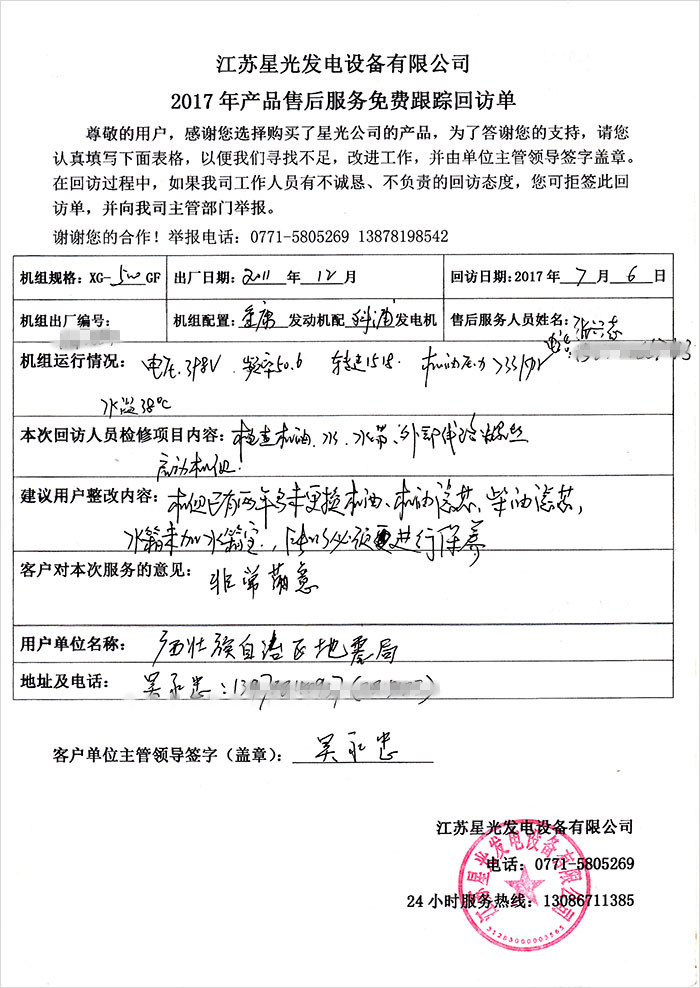 江苏星光发电设备有限公司
2017年产品售后服务免费跟踪回访单
尊敬的用户，感谢您选择购买了星光公司的产品，为了答谢您的支持，请您
认真填写下面表格，以便我们寻找不足，改进工作，并由单位主管领导签字盖章。
在回访过程中，如果我司工作人员有不诚恳、不负责的回访态度，您可拒签此回
访单，并向我司主管部门举报。
谢谢您的合作！举报电话：0771-5805269 13878198542
机组规格：XG-500GF 出厂日期：2011 年 12 月 回访日期：2017年 7 月 6 日
机组出厂编号： 机组配置：重庆 发动机配 科浦 发电机 售后服务人员姓名：
电话：
机组运行情况：电压.398V 频率50.6 转速1518 机油压力
水温38℃
本次回访人员检修项目内容：检查机油、水、水带、外部
启动机组.
建议用户整改内容：机组已有两年多未更换机油、机油滤芯、柴油滤芯，
水箱未加水箱宝，所以必须要进行保养
客户对本次服务的意见：非常满意
用户单位名称：广西壮族自治区地震局
地址及电话：吴永忠：
客户单位主管领导签字（盖章）：吴永忠
江苏星光发电设备有限公司
电话：0771-5805269
24小时服务热线：13086711385
江苏星光发电设备有限公司
31283000003565